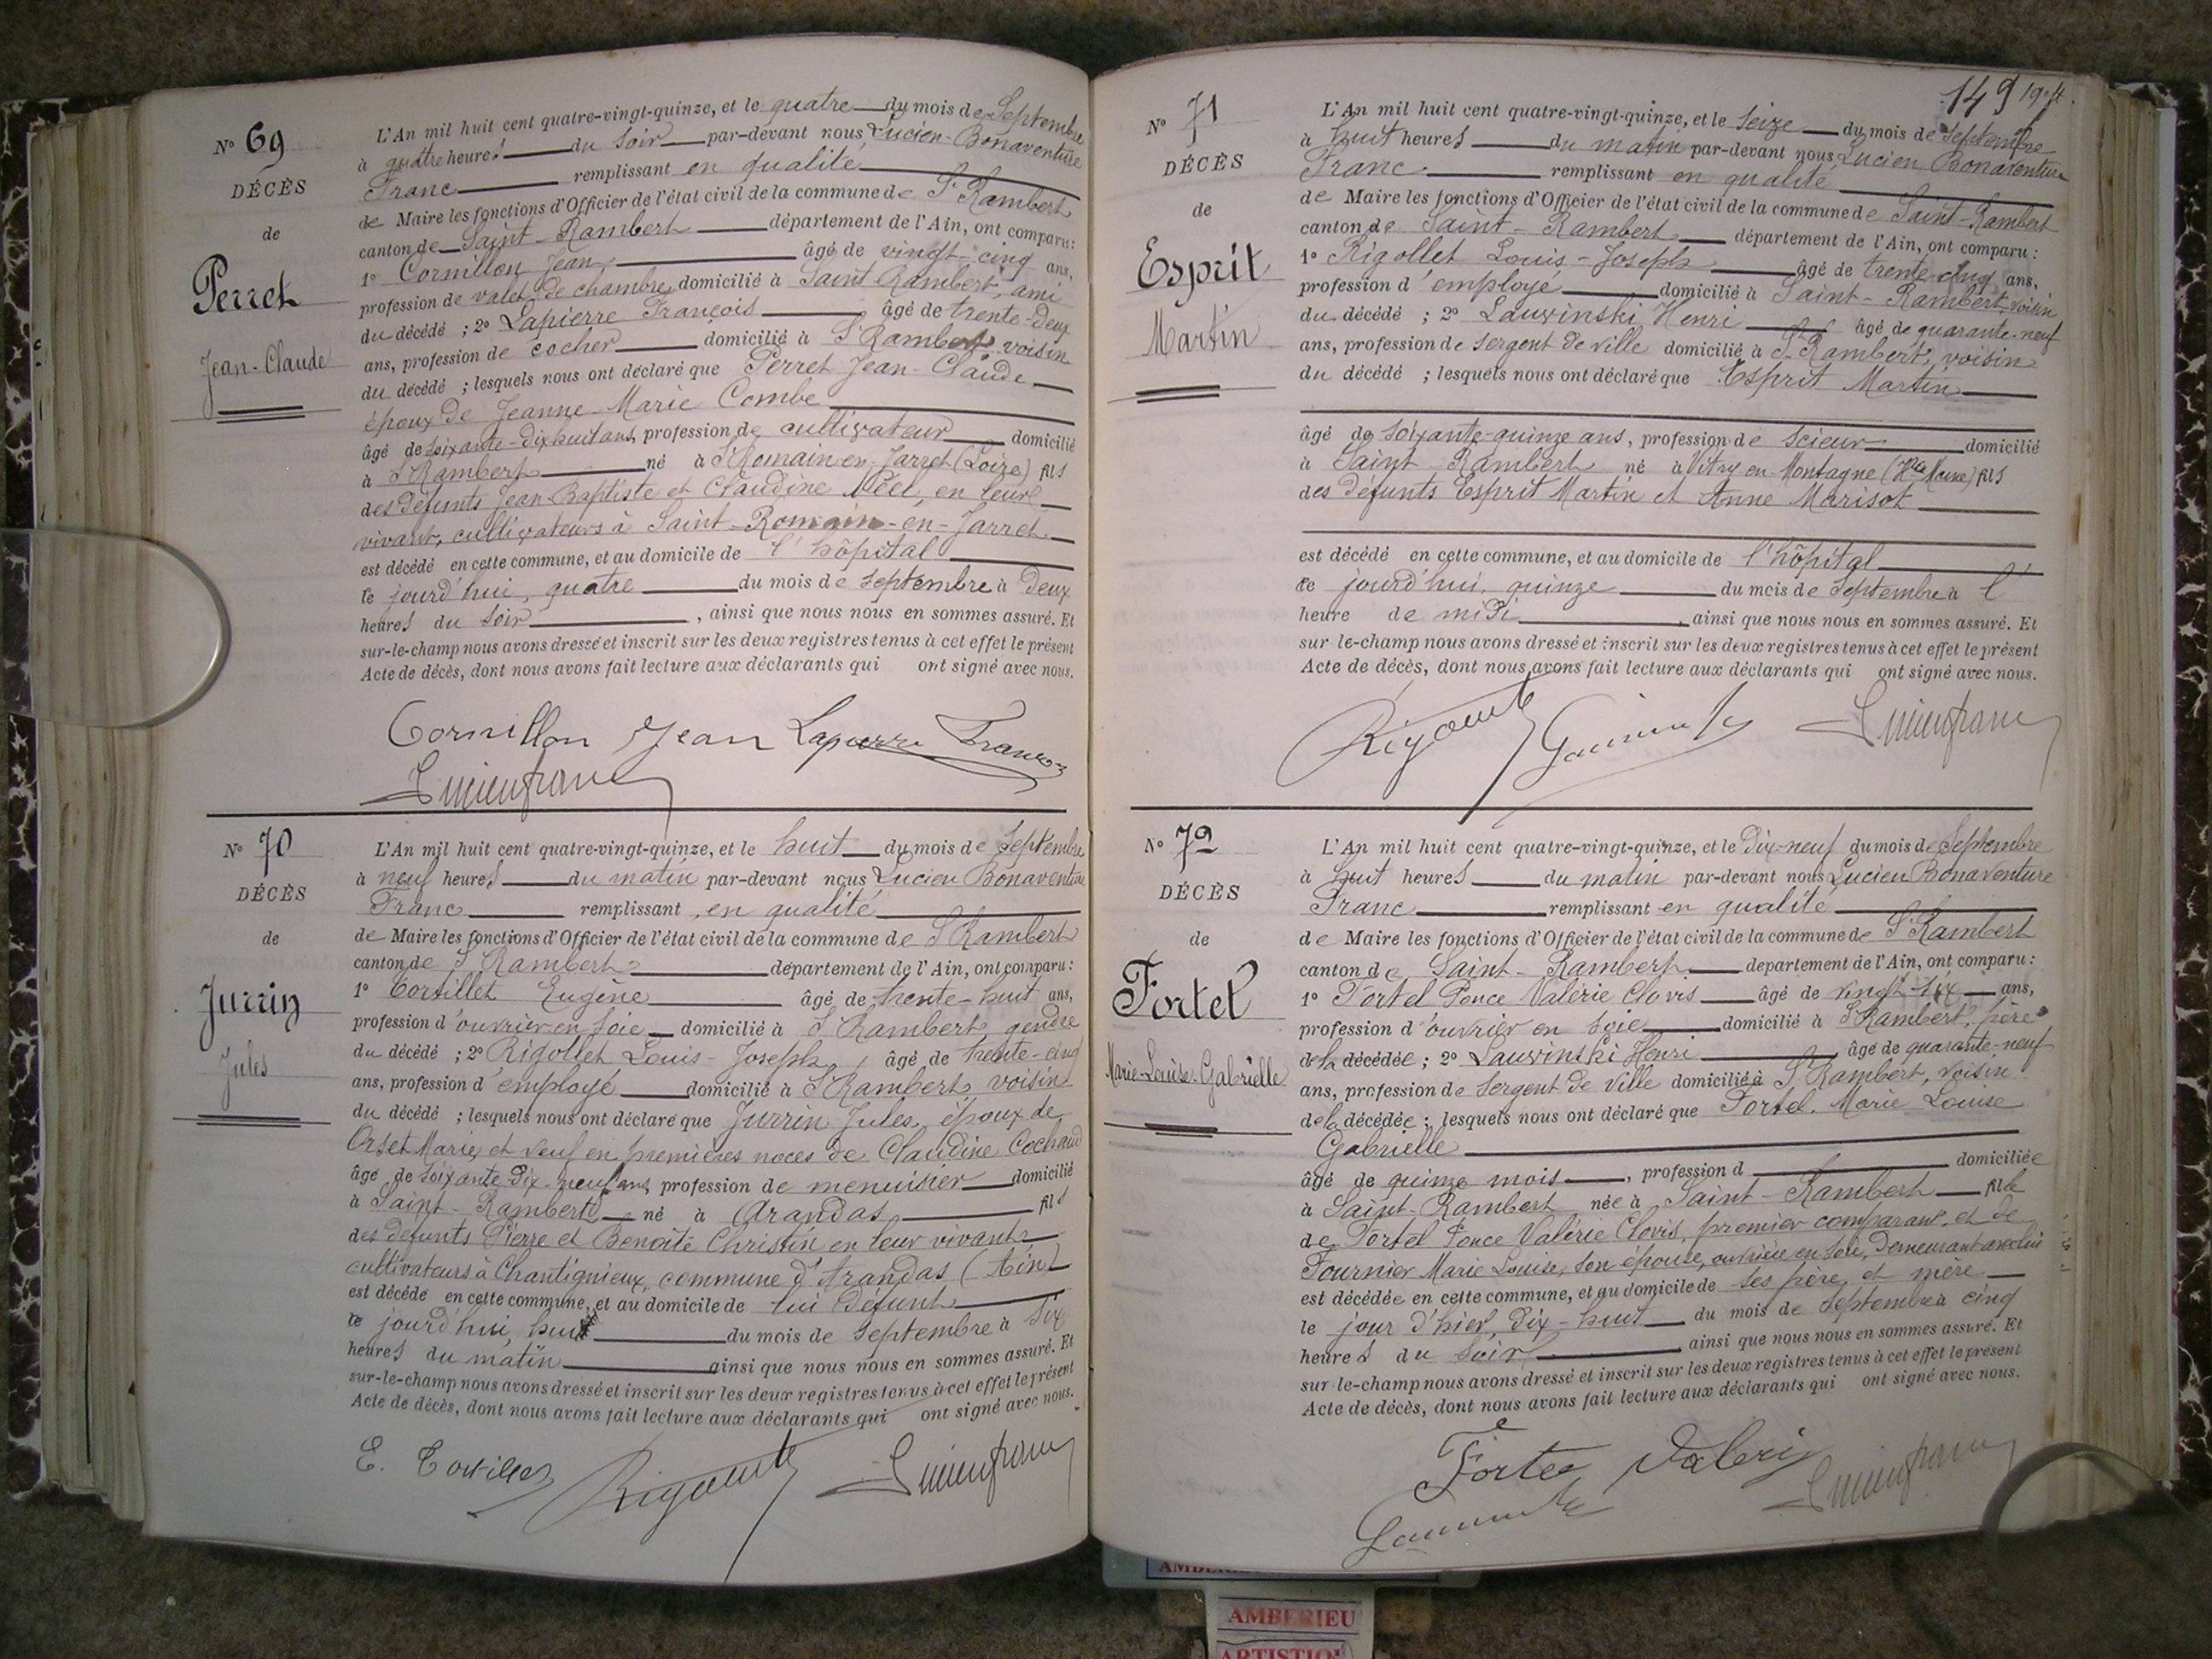 No 69
DÉCÈS
de
Perret
Jean-Claude
L'An mil huit cent quatre-vingt-quinze, et le quatre du mois de Septembre
à quatre heures du soir par-devant nous Lucien-Bonaventure
Franc remplissant en qualité
de Maire les fonctions d'Officier de l'état civil de la commune de St Rambert
canton de Saint-Rambert département de l'Ain, ont comparu :
1o Cornillon Jean âgé de vingt-cinq ans,
profession de valet de chambre domicilié à Saint Rambert, ami
du décédé ; 2o Lapierre François âgé de trente-deux
ans, profession de cocher domicilié à St Rambert voisin
du décédé ; lesquels nous ont déclaré que Perret Jean-Claude
époux de Jeanne-Marie Combe
âgé de soixante-dix huit ans profession de cultivateur domicilié
à St Rambert né à St Romain en-Jarret (Loire) fils
des défunts Jean-Baptiste et Claudine Néel, en leur
vivant, cultivateurs à Saint-Romain-en-Jarret
est décédé en cette commune, et au domicile de l'hôpital
le jourd'hui, quatre du mois de septembre à deux
heures du soir, ainsi que nous nous en sommes assuré. Et
sur-le-champ nous avons dressé et inscrit sur les deux registres tenus à cet effet le présent
Acte de décès, dont nous avons fait lecture aux déclarants qui ont signé avec nous.
Cornillon Jean Lapierre François
Lucien franc
No 70
DÉCÈS
de
Jurrin
Jules
L'An mil huit cent quatre-vingt-quinze, et le huit du mois de Septembre
à neuf heures du matin par-devant nous Lucien Bonaventure
Franc remplissant en qualité
de Maire les fonctions d'Officier de l'état civil de la commune de St Rambert
canton de St Rambert département de l'Ain, ont comparu :
1o Corsillet Eugène âgé de trente-huit ans,
profession d'ouvrier en soie domicilié à St Rambert, gendre
du décédé ; 2o Rigollet Louis-Joseph, âgé de trente-cinq
ans, profession d'employé domicilié à St Rambert, voisin
du décédé ; lesquels nous ont déclaré que Jurrin Jules, époux de
Orset Marie, et veuf en premières noces de Claudine Cochand
âgé de soixante-dix-neuf ans profession de menuisier domicilié
à Saint-Rambert né à Arandas fils
des défunts Pierre et Benoîte Christin en leur vivant
cultivateurs à Chantignieux, commune d'Arandas (Ain)
est décédé en cette commune, et au domicile de lui défunt
le jourd'hui, huit du mois de septembre à six
heures du matin ainsi que nous nous en sommes assuré. Et
sur-le-champ nous avons dressé et inscrit sur les deux registres tenus à cet effet le présent
Acte de décès, dont nous avons fait lecture aux déclarants qui ont signé avec nous.
E. Lucien franc
149
No 71
DÉCÈS
de
Esprit
Martin
L'An mil huit cent quatre-vingt-quinze, et le seize du mois de Septembre
à huit heures du matin par-devant nous Lucien Bonaventure
Franc remplissant en qualité
de Maire les fonctions d'Officier de l'état civil de la commune de Saint-Rambert
canton de Saint-Rambert département de l'Ain, ont comparu :
1o Rigollet Louis-Joseph âgé de trente-cinq ans,
profession d'employé domicilié à Saint-Rambert, voisin
du décédé ; 2o Lauvinski Henri âgé de quarante-neuf
ans, profession de sergent de ville domicilié à St Rambert, voisin
du décédé ; lesquels nous ont déclaré que Esprit Martin
âgé de soixante-quinze ans, profession de scieur domicilié
à Saint-Rambert né à Vitry en-Montagne (Hte Marne) fils
des défunts Esprit Martin et Anne Marisot
est décédé en cette commune, et au domicile de l'hôpital
le jourd'hui, quinze du mois de Septembre à l'
heure de midi, ainsi que nous nous en sommes assuré. Et
sur-le-champ nous avons dressé et inscrit sur les deux registres tenus à cet effet le présent
Acte de décès, dont nous avons fait lecture aux déclarants qui ont signé avec nous.
Lucien franc
No 72
DÉCÈS
de
Fortel
Marie-Louise-Gabrielle
L'An mil huit cent quatre-vingt-quinze, et le dix-neuf du mois de Septembre
à huit heures du matin par-devant nous Lucien Bonaventure
Franc remplissant en qualité
de Maire les fonctions d'Officier de l'état civil de la commune de St Rambert
canton de Saint-Rambert département de l'Ain, ont comparu :
1o Fortel Ponce Valérie Clovis âgé de vingt-six ans,
profession d'ouvrier en soie domicilié à St Rambert, père
de la décédée ; 2o Lauvinski Henri âgé de quarante-neuf
ans, profession de sergent de ville domicilié à St Rambert, voisin
de la décédée ; lesquels nous ont déclaré que Fortel Marie Louise
Gabrielle
âgé de quinze mois, profession d domiciliée
à Saint-Rambert née à Saint-Rambert fille
de Fortel Ponce Valérie Clovis, premier comparant, et de
Fournier Marie Louise, son épouse, ouvrière en soie, demeurant avec lui
est décédée en cette commune, et au domicile de ses père et mère
le jour d'hier, dix-huit du mois de Septembre à cinq
heures du soir ainsi que nous nous en sommes assuré. Et
sur-le-champ nous avons dressé et inscrit sur les deux registres tenus à cet effet le présent
Acte de décès, dont nous avons fait lecture aux déclarants qui ont signé avec nous.
Valery Lucien franc
AMBERIEU